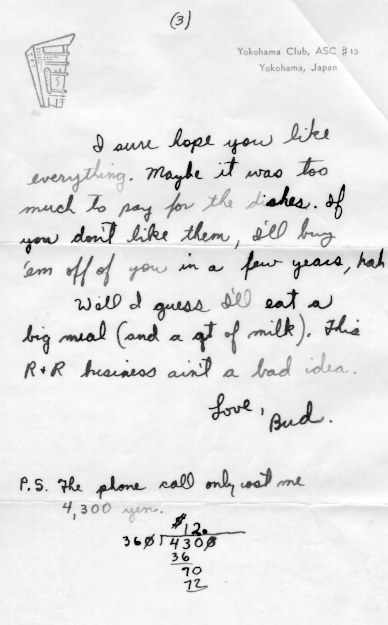 (3)
Yokohama Club, ASC #15
Yokohama, Japan
I sure hope you like
everything. Maybe it was too
much to pay for the dishes. If
you don't like them, I'll buy
'em off of you in a few years, hah
Well I guess I'll eat a
big meal (and a qt of milk). This
R+R business ain't a bad idea.
Love,
Bud.
P.S. The phone call only cost me
4,300 yen.
$12.
360 4300
36
70
72